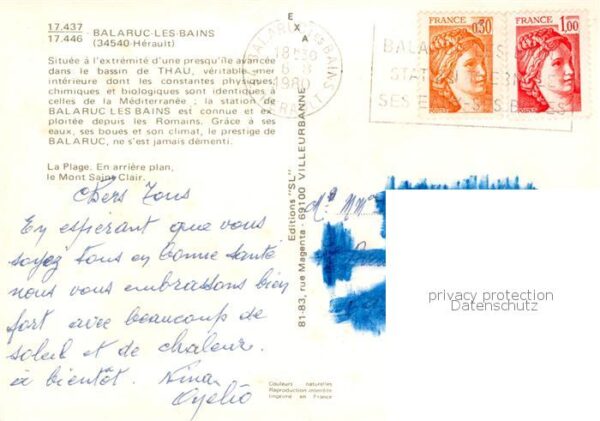 17.437
17.446 - BALARUC-LES-BAINS
(34540-Hérault)
Située à l'extrémité d'une presqu'île avancée
dans le bassin de THAU, véritable mer
intérieure dont les constantes physiques,
chimiques et biologiques sont identiques à
celles de la Méditerranée ; la station de
BALARUC LES BAINS est connue et ex-
ploitée depuis les Romains. Grâce à ses
eaux, ses boues et son climat, le prestige de
BALARUC, ne s'est jamais démenti.
La Plage. En arrière plan,
le Mont Saint Clair.
Chers Tous
En espérant que vous
soyez tous en bonne santé
nous vous embrassons bien
fort avec beaucoup de
soleil et de chaleur.
à bientôt. Nina
EXA
Editions "SL"
81-83, rue Magenta - 69100 VILLEURBANNE
BALARUC LES BAINS
18H30
1980
HERAULT
BALA
STAT
SES
FRANCE
0,30
FRANCE
1,00
privacy protection
Datenschutz
Couleurs naturelles
Reproduction interdite
Imprimé en France